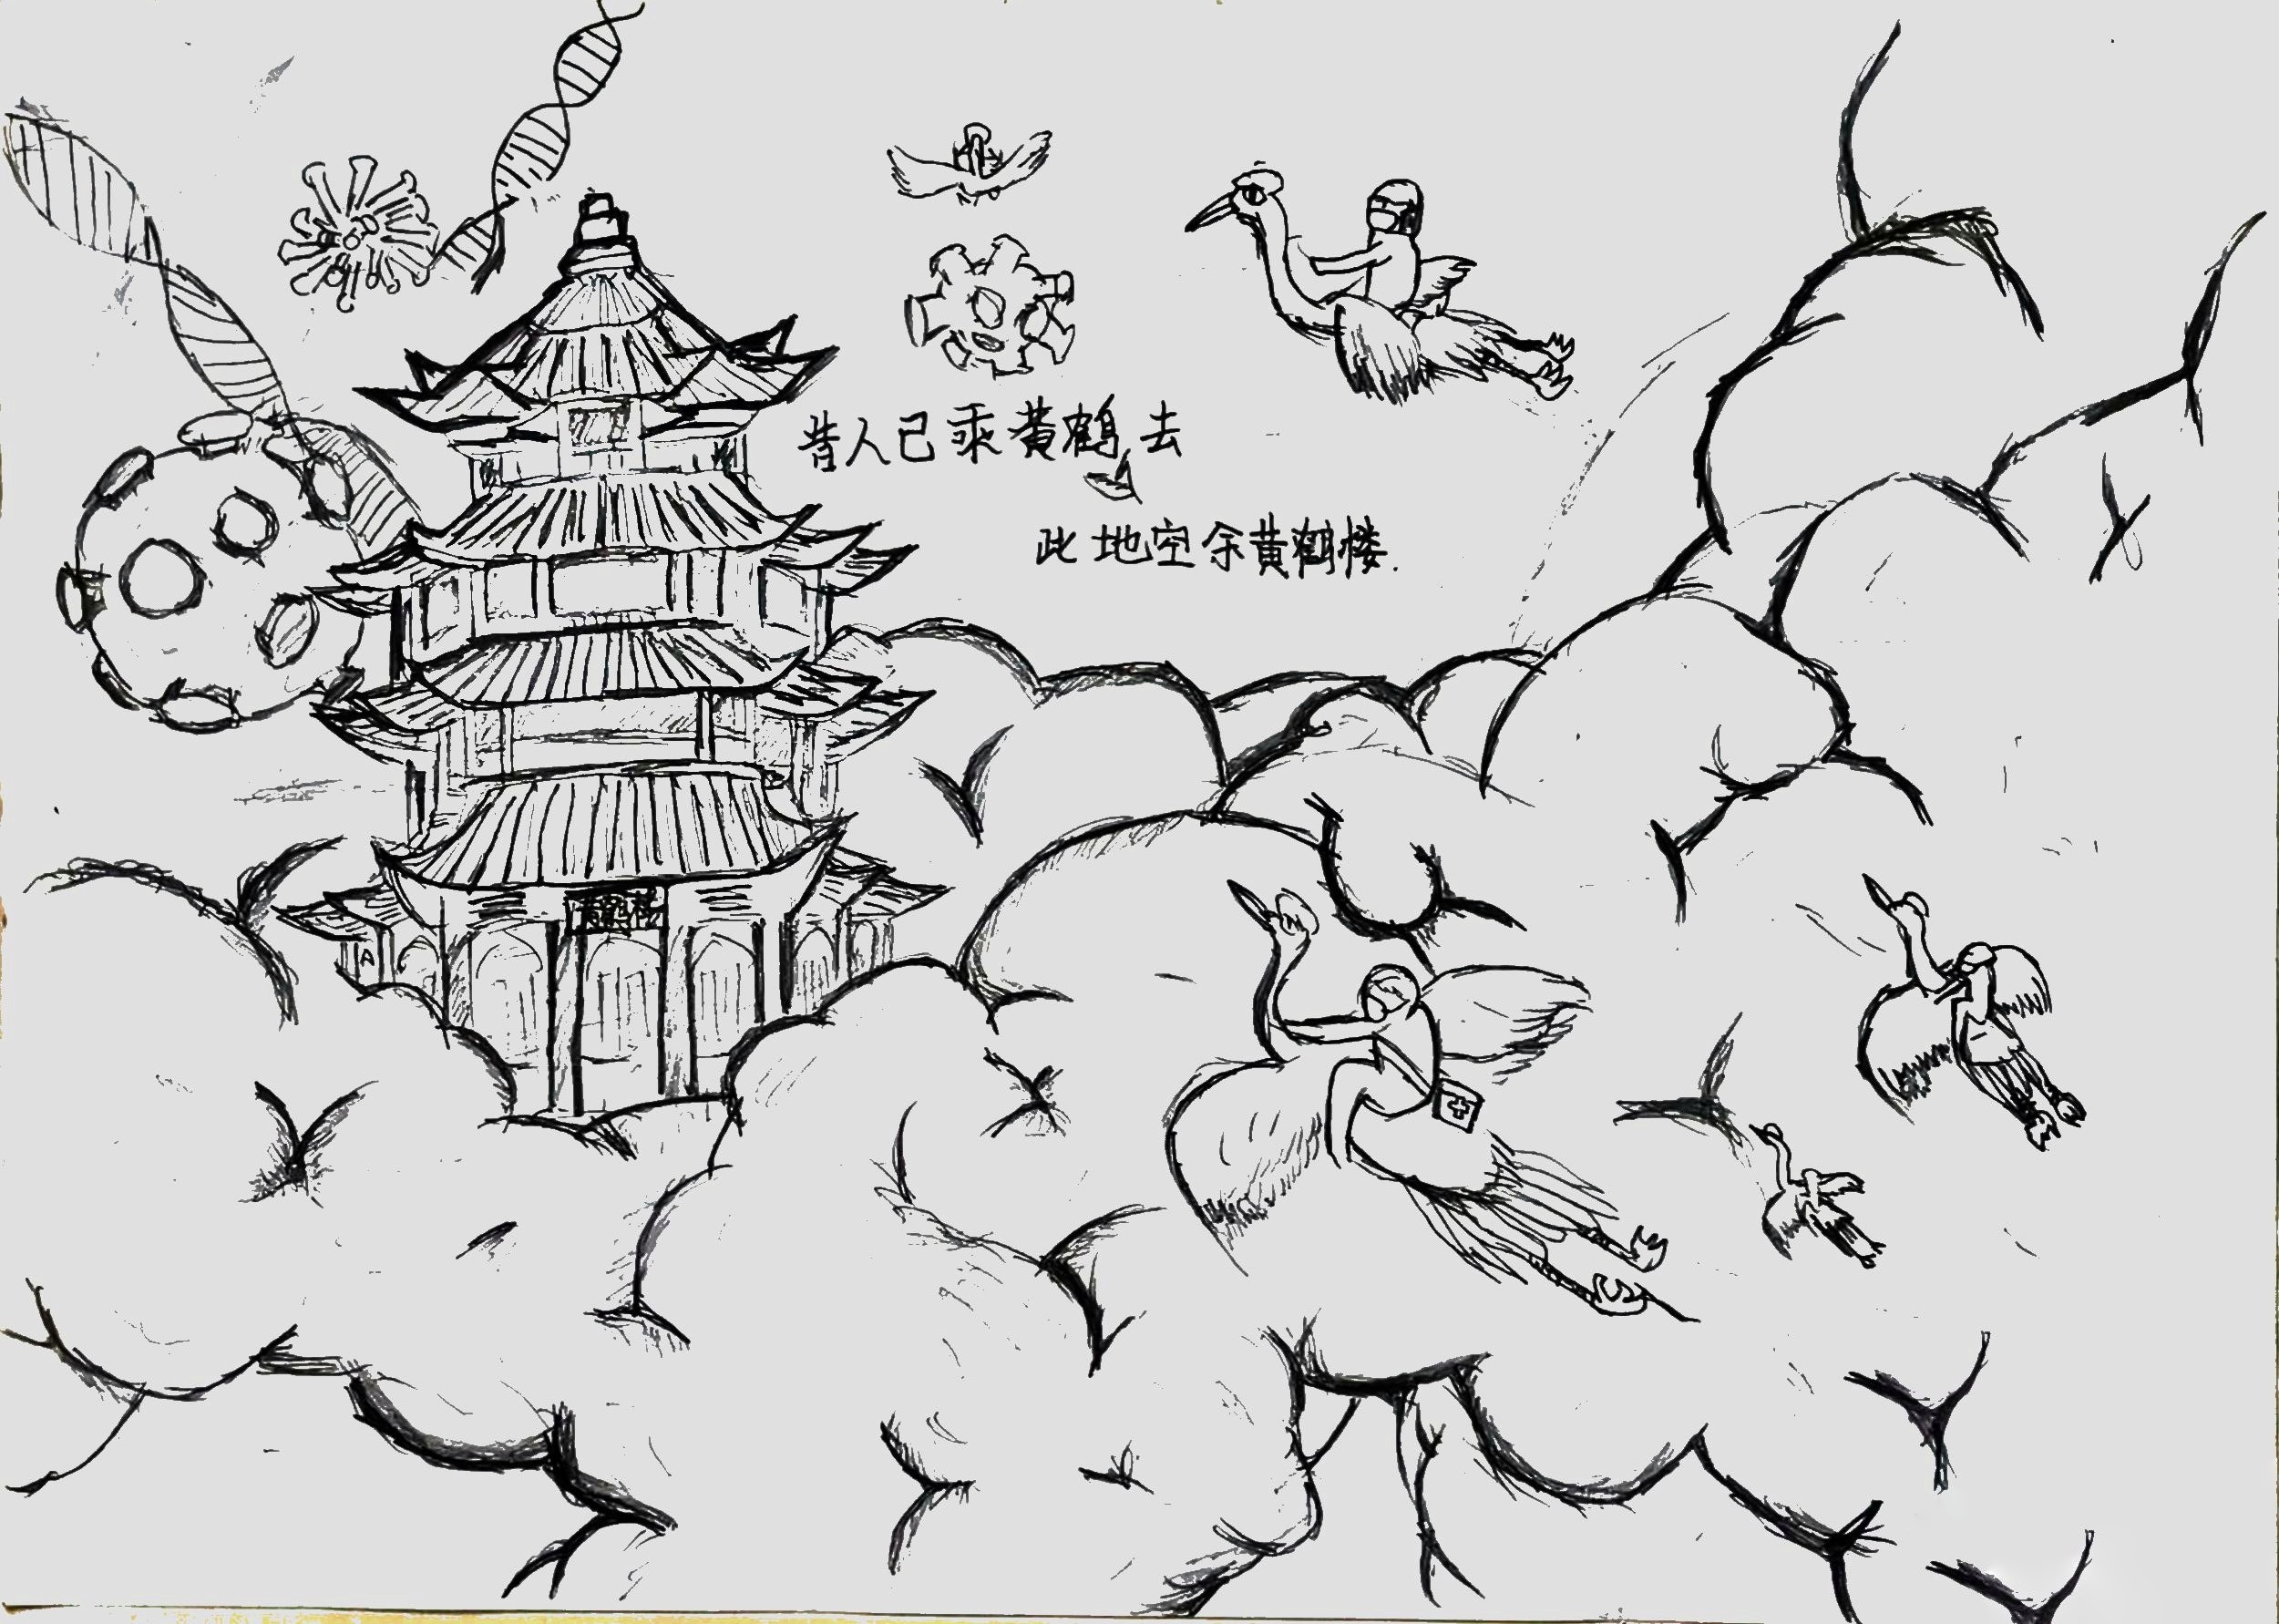 昔人已乘黄鹤去
此地空余黄鹤楼.
黄鹤楼